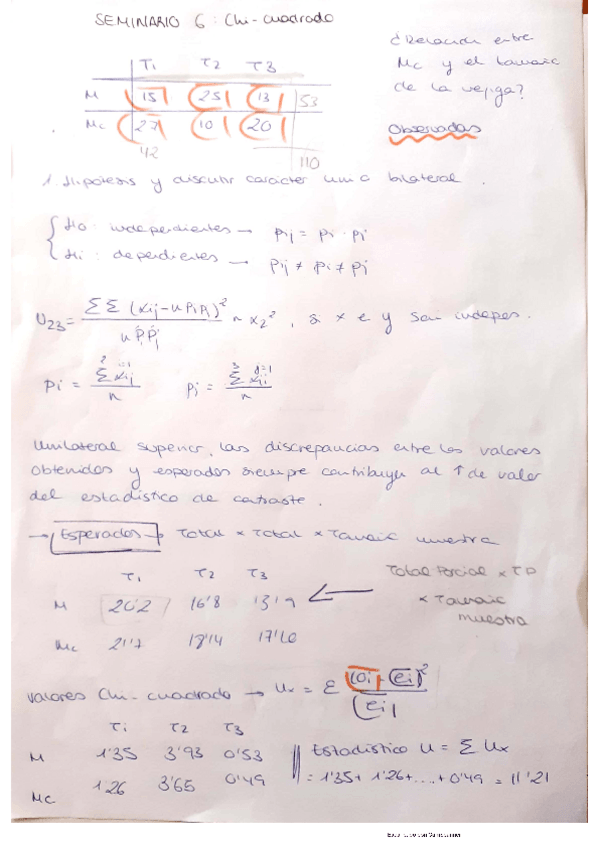 SEMINARIO 6: Chi-cuadrado
¿Relación entre
Mc y el tamaño
de la vejiga?
Observadas
T1 T2 T3
M 15 25 13 53
Mc 27 10 20
42 110
1. Hipótesis y discutir carácter uni o bilateral.
Ho: independientes → pij = pi · pj
Hi: dependientes → pij ≠ pi ≠ pj
U23 = ΣΣ (xij - n pi pj)² / n pi pj ~ x2², si x e y son indepes.
pi = Σ xij / n pj = Σ xij / n
Unilateral superior, las discrepancias entre los valores
obtenidos y esperados siempre contribuyen al ↑ de valor
del estadístico de contraste.
→ Esperados → Total × Total × Tamaño muestra
T1 T2 T3
M 20'2 16'8 13'9
Mc 21'7 18'14
Total Parcial × TP
× Tamaño
muestra
Valores Chi-cuadrado → Ux = Σ (oi - ei)² / ei
T1 T2 T3
M 1'35 3'93 0'53
Mc 1'26 3'65 0'49
Estadístico U = Σ Ux
= 1'35 + 1'26 + .... + 0'49 = 11'21